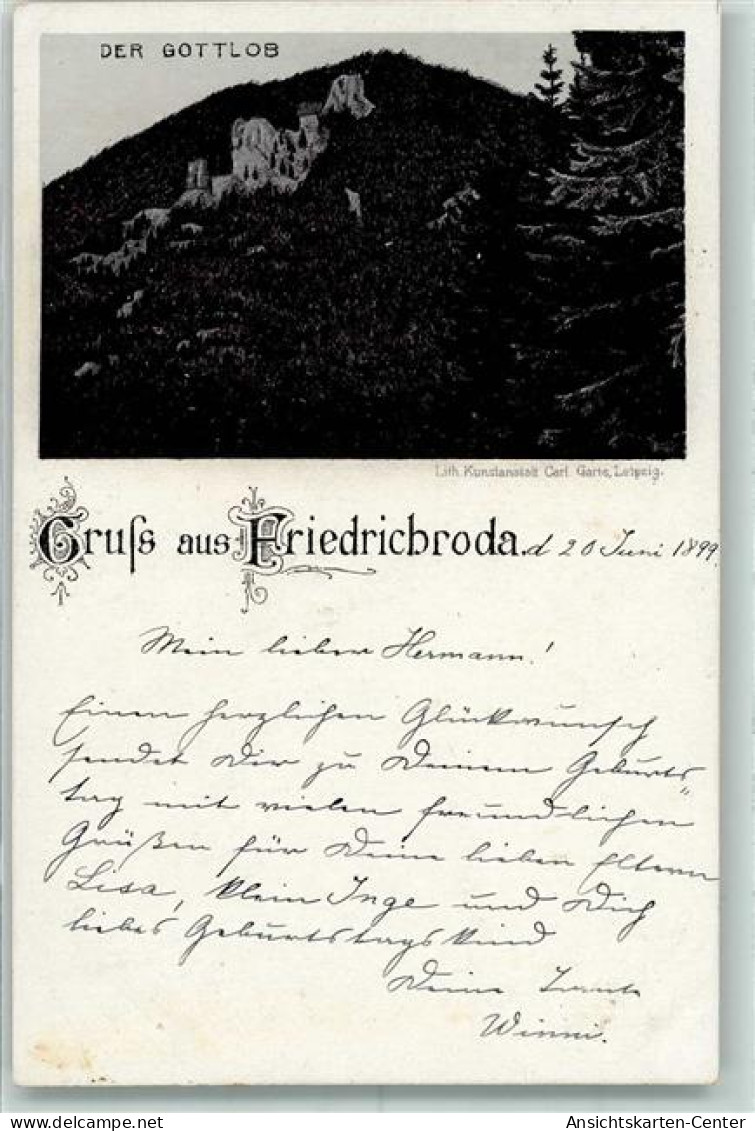 DER GOTTLOB
Lith. Kunstanstalt Carl Garte, Leipzig.
Gruſs aus Friedrichroda. d 20 Juni 1899.
Mein lieber Hermann!
Einen herzlichen Glückwunsch
sendet Dir zu Deinem Geburts„
tag mit vielen freundlichen
Grüßen für Deine lieben Eltern
Lisa, klein Inge und Dich
liebes Geburtstagskind
Deine Tante
Winni.
Ansichtskarten-Center